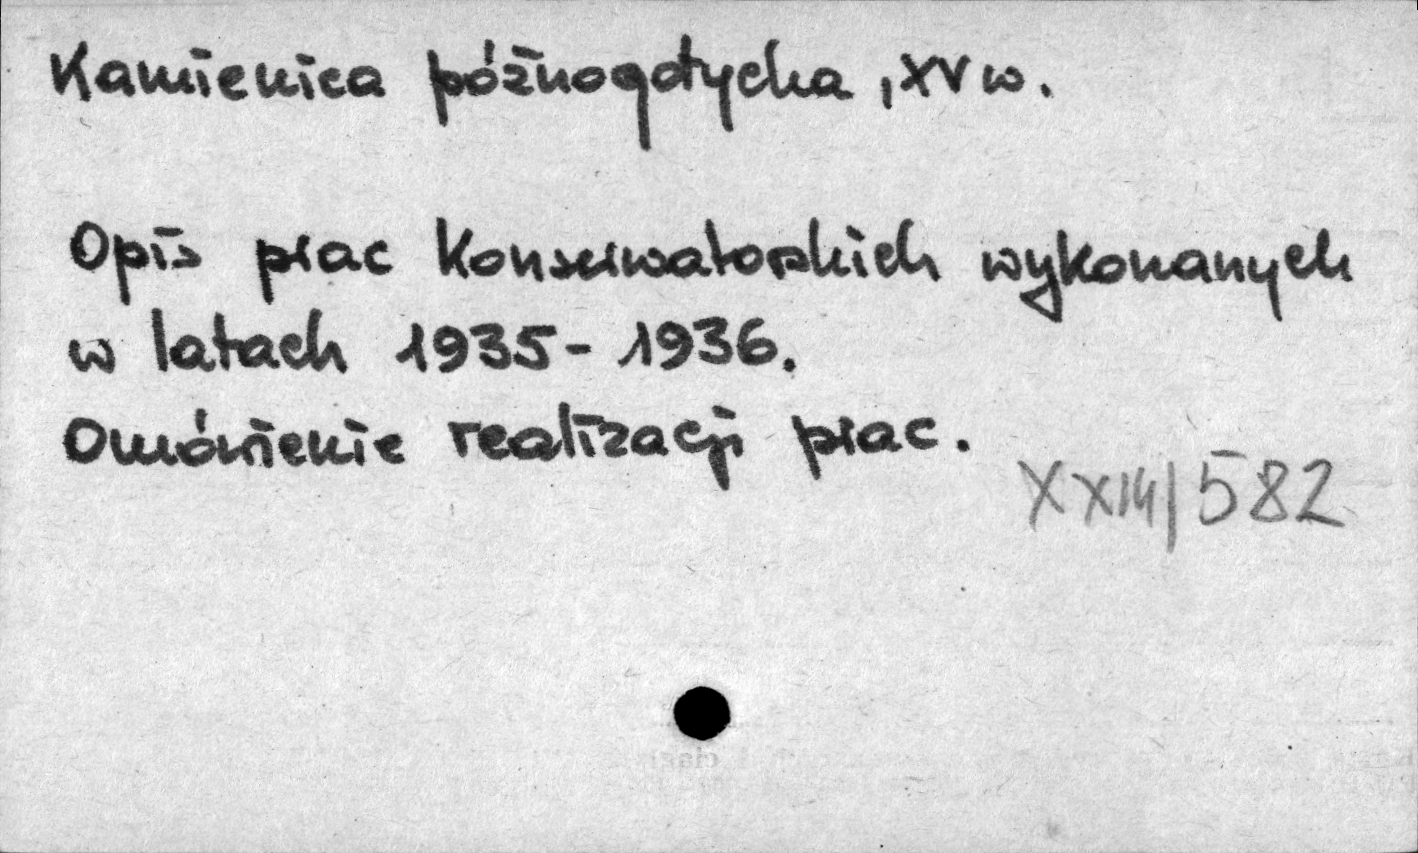 Kamienica późnogotycka, XV w.
Opis prac konserwatorskich wykonanych
w latach 1935-1936.
Omówienie realizacji prac.
582